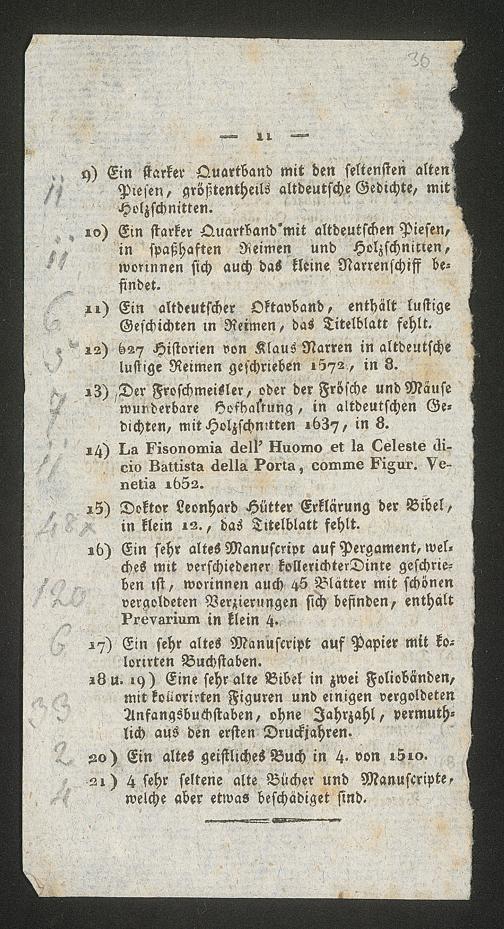 36
— 11 —
9) Ein starker Quartband mit den seltensten alten
Piesen, größtentheils altdeutsche Gedichte, mit
Holzschnitten.
ii
10) Ein starker Quartband mit altdeutschen Piesen,
in spaßhaften Reimen und Holzschnitten,
worinnen sich auch das kleine Narrenschiff be-
findet.
ii
11) Ein altdeutscher Oktavband, enthält lustige
Geschichten in Reimen, das Titelblatt fehlt.
6
12) 627 Historien von Klaus Narren in altdeutsche
lustige Reimen geschrieben 1572, in 8.
13) Der Froschmeisler, oder der Frösche und Mäuse
wunderbare Hofhaltung, in altdeutschen Ge-
dichten, mit Holzschnitten 1637, in 8.
7
14) La Fisonomia dell' Huomo et la Celeste di-
cio Battista della Porta, comme Figur. Ve-
netia 1652.
ii
15) Doktor Leonhard Hütter Erklärung der Bibel,
in klein 12., das Titelblatt fehlt.
48x
16) Ein sehr altes Manuscript auf Pergament, wel-
ches mit verschiedener kollerichter Dinte geschrie-
ben ist, worinnen auch 45 Blätter mit schönen
vergoldeten Verzierungen sich befinden, enthält
Prevarium in klein 4.
120
17) Ein sehr altes Manuscript auf Papier mit ko-
lorirten Buchstaben.
6
18 u. 19) Eine sehr alte Bibel in zwei Foliobänden,
mit kollorirten Figuren und einigen vergoldeten
Anfangsbuchstaben, ohne Jahrzahl, vermuth-
lich aus den ersten Druckjahren.
33
20) Ein altes geistliches Buch in 4. von 1510.
2
21) 4 sehr seltene alte Bücher und Manuscripte,
welche aber etwas beschädiget sind.
4